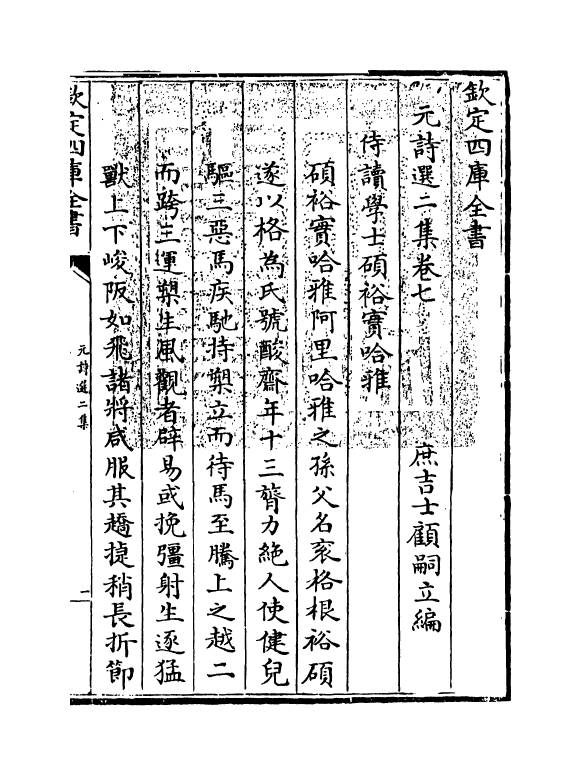 欽定四庫全書
元詩選二集卷七
庶吉士顧嗣立編
侍讀學士碩裕實哈雅
碩裕實哈雅阿里哈雅之孫父名衮格根裕碩
遂以格為氏號酸齋年十三膂力絶人使健兒
驅三惡馬疾馳持槊立而待馬至騰上之越二
而跨三運槊生風觀者辟易或挽彊射生逐猛
獸上下峻阪如飛諸將咸服其趫㨗稍長折節
欽定四庫全書
元詩選二集